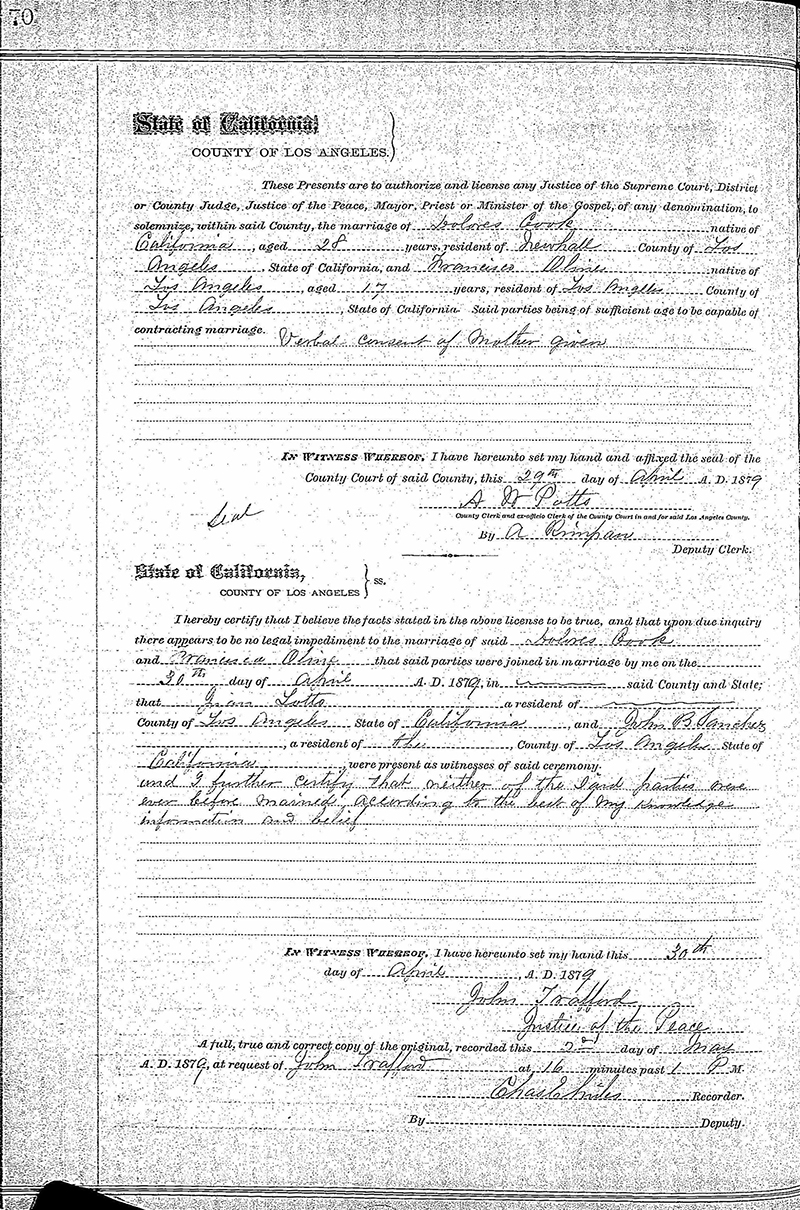 70
State of California,
COUNTY OF LOS ANGELES.
These Presents are to authorize and license any Justice of the Supreme Court, District
or County Judge, Justice of the Peace, Mayor, Priest or Minister of the Gospel, of any denomination, to
solemnize, within said County, the marriage of Dolores Cook native of
California, aged 28 years, resident of Newhall County of Los
Angeles, State of California, and Francisca Olme native of
Los Angeles, aged 17 years, resident of Los Angeles County of
Los Angeles, State of California. Said parties being of sufficient age to be capable of
contracting marriage. Verbal consent of Mother given
IN WITNESS WHEREOF, I have hereunto set my hand and affixed the seal of the
County Court of said County, this 29th day of April A. D. 1879
Seal
A W Potts
County Clerk and ex-officio Clerk of the County Court in and for said Los Angeles County.
By A Rimpau
Deputy Clerk.
State of California,
COUNTY OF LOS ANGELES ss.
I hereby certify that I believe the facts stated in the above license to be true, and that upon due inquiry
there appears to be no legal impediment to the marriage of said Dolores Cook
and Francisca Olme that said parties were joined in marriage by me on the
30th day of April A. D. 1879, in said County and State;
that Juan a resident of
County of Los Angeles State of California, and John B Sanchez
, a resident of the, County of Los Angeles State of
California, were present as witnesses of said ceremony.
and I further certify that neither of the said parties were
ever before married, according to the best of my knowledge
information and belief
IN WITNESS WHEREOF, I have hereunto set my hand this 30th
day of April, A. D. 1879
John Trafford
Justice of the Peace
A full, true and correct copy of the original, recorded this 2d day of May
A. D. 1879, at request of John Trafford at 16 minutes past 1 P M.
Chas E Miles Recorder.
By Deputy.